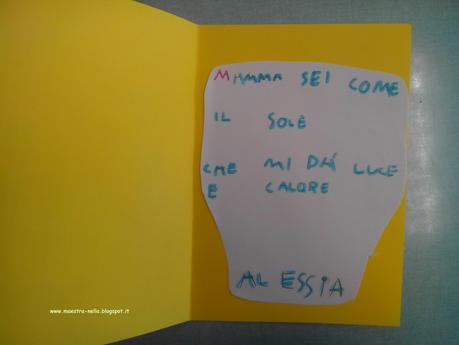 MAMMA SEI COME
IL SOLE
CHE MI DAI LUCE
E CALORE
ALESSIA
www.maestra-nella.blogspot.it